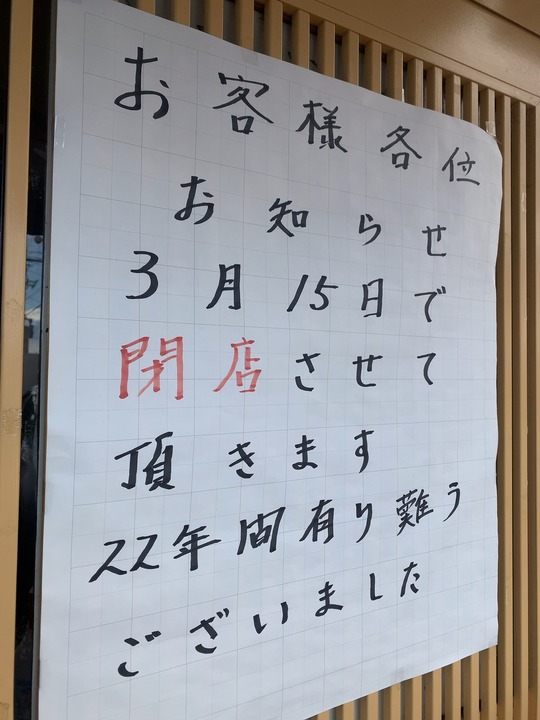 お客様各位
お知らせ
3月15日で
閉店させて
頂きます
22年間有り難う
ございました